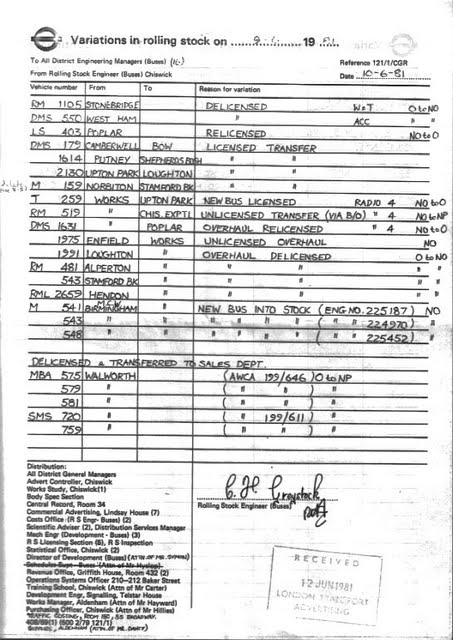 Variations in rolling stock on 9.6. 19 81.
To All District Engineering Managers (Buses) (16)
Reference 121/1/CGR
From Rolling Stock Engineer (Buses) Chiswick
Date 10-6-81
Vehicle number From To Reason for variation
RM 1105 STONEBRIDGE DELICENSED W&T O to NO
DMS 550 WEST HAM " ACC " "
LS 403 POPLAR RELICENSED NO to O
DMS 179 CAMBERWELL BOW LICENSED TRANSFER
1614 PUTNEY SHEPHERDS BUSH " "
2130 UPTON PARK LOUGHTON " "
M 159 NORBITON STAMFORD BK " "
T 259 WORKS UPTON PARK NEW BUS LICENSED RADIO 4 NO to O
RM 519 " CHIS. EXPTL UNLICENSED TRANSFER (VIA B/O) " 4 NO to NP
DMS 1631 " POPLAR OVERHAUL RELICENSED " 4 NO to O
1975 ENFIELD WORKS UNLICENSED OVERHAUL NO
1991 LOUGHTON " OVERHAUL DELICENSED O to NO
RM 481 ALPERTON " " " " "
543 STAMFORD BK " " " " "
RML 2659 HENDON " " " " "
M 541 M.C.W. BIRMINGHAM NEW BUS INTO STOCK (ENG NO. 225187) NO
543 " " " " " ( " " 224970) "
548 " " " " " ( " " 225452) "
DELICENSED & TRANSFERRED TO SALES DEPT.
MBA 575 WALWORTH (AWCA 199/646) O to NP
579 " ( " " ) "
581 " ( " " ) "
SMS 720 " ( " 199/611) "
759 " ( " " ) "
Distribution:
All District General Managers
Advert Controller, Chiswick
Works Study, Chiswick(1)
Body Spec Section
Central Record, Room 34
Commercial Advertising, Lindsay House (7)
Costs Office (R S Engr- Buses) (2)
Scientific Adviser (2), Distribution Services Manager
Mech Engr (Development - Buses) (3)
R S Licensing Section (8), R S Inspection
Statistical Office, Chiswick (2)
Director of Development (Buses) (ATTN OF MR.
Schedules Supt - Buses (Attn of Mr Hyslop)
Revenue Office, Griffith House, Room 432 (2)
Operations Systems Officer 210-212 Baker Street
Training School, Chiswick (Attn of Mr Carter)
Development Engr, Signalling, Telstar House
Works Manager, Aldenham (Attn of Mr Hayward)
Purchasing Officer, Chiswick (Attn of Mr Hillies)
TRAFFIC COSTING, ROOM 55 BROADWAY.
ALDENHAM (ATTN OF MR.
Rolling Stock Engineer (Buses)
RECEIVED
12 JUN 1981
LONDON TRANSPORT
ADVERTISING